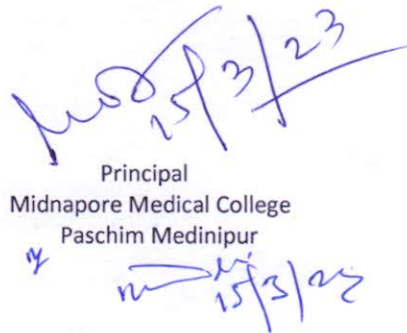 15/3/23
Principal
Midnapore Medical College
Paschim Medinipur
15/3/23